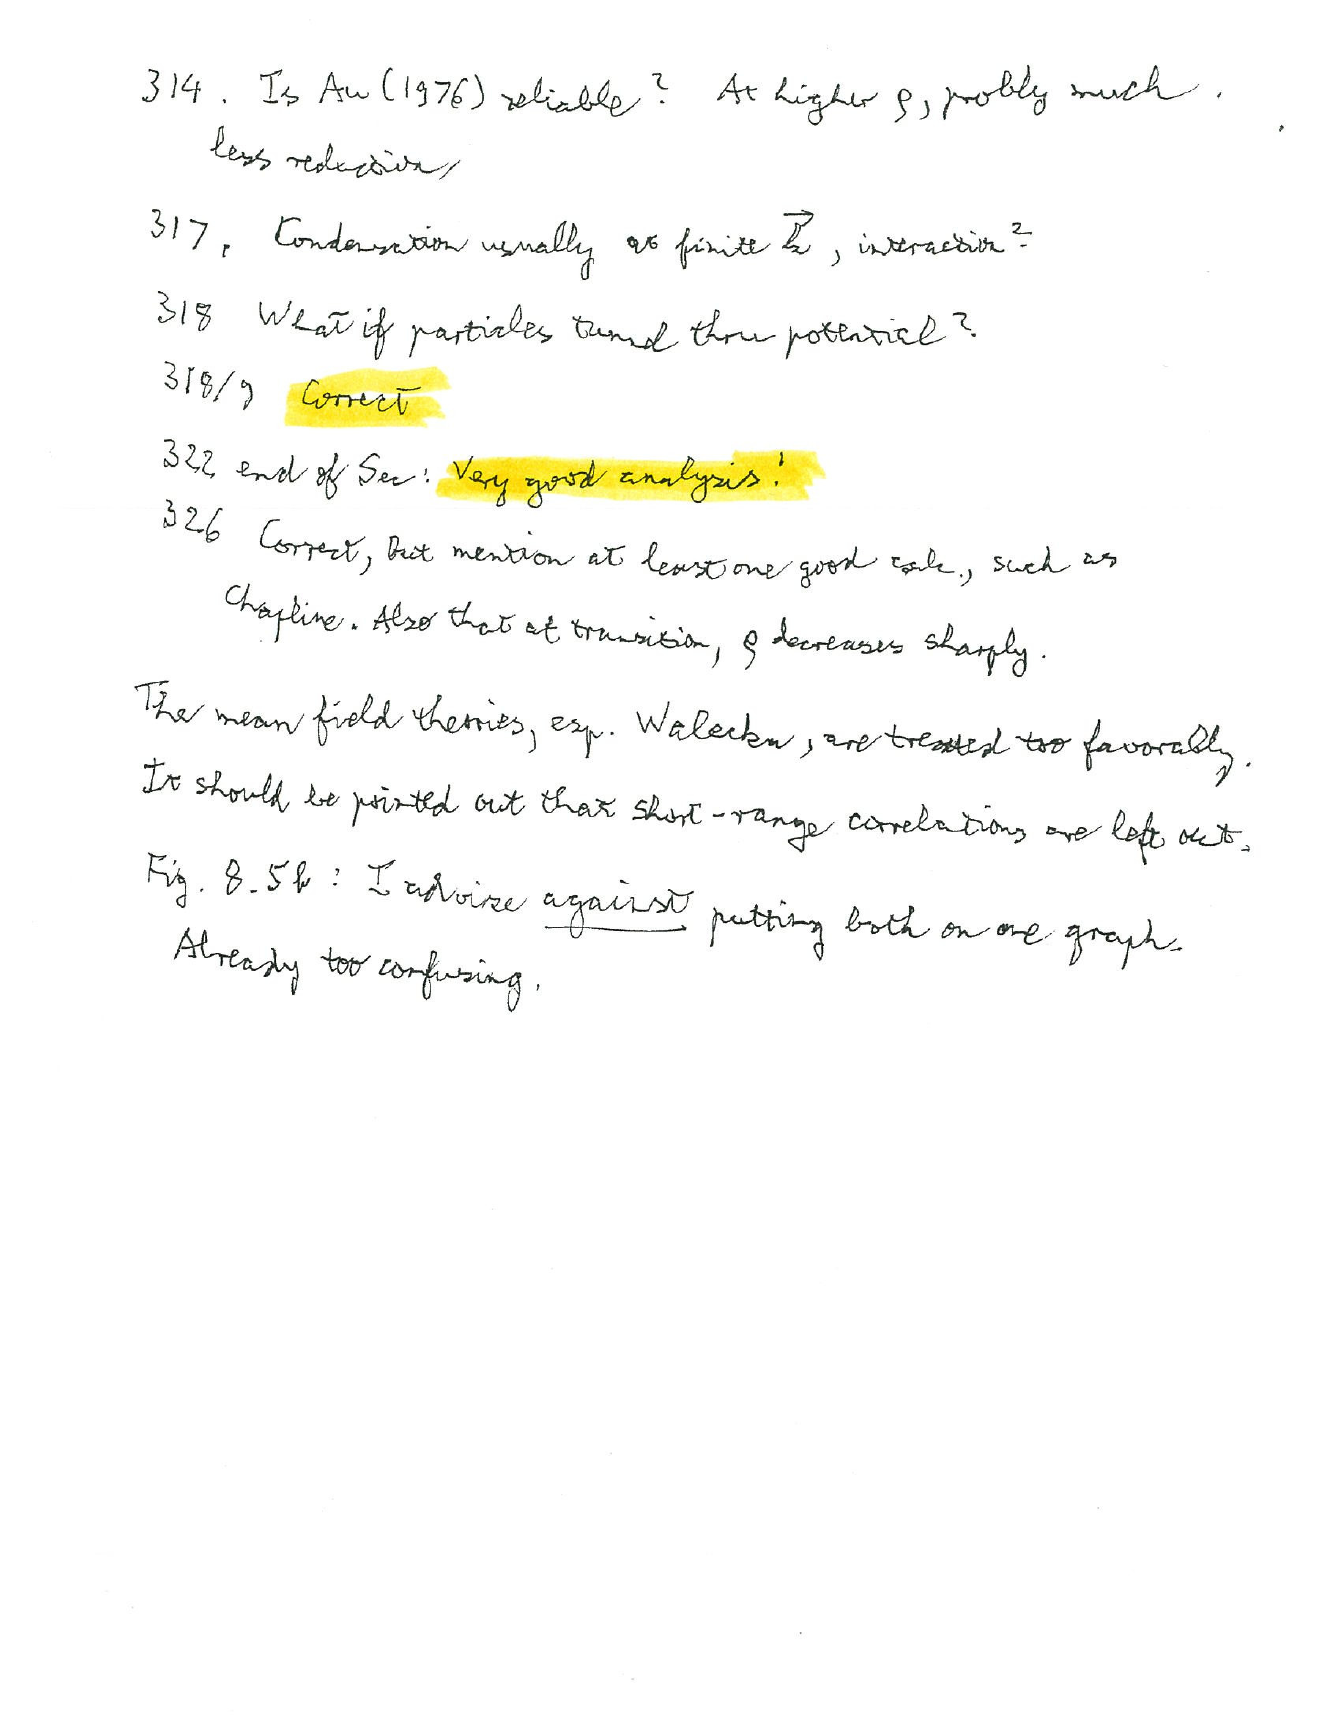 314. Is Au (1976) reliable? At higher ρ, probly much
less reduction,
317. Condensation usually at finite k⃗, interaction?
318 What if particles tunnel thru potential?
318/9 Correct
322 end of Sec: Very good analysis!
326 Correct, but mention at least one good calc., such as
Chapline. Also that at transition, ρ decreases sharply.
The mean field theories, esp. Walecka, are treated too favorably.
It should be pointed out that short-range correlations are left out.
Fig. 8.5b: I advise against putting both on one graph.
Already too confusing.